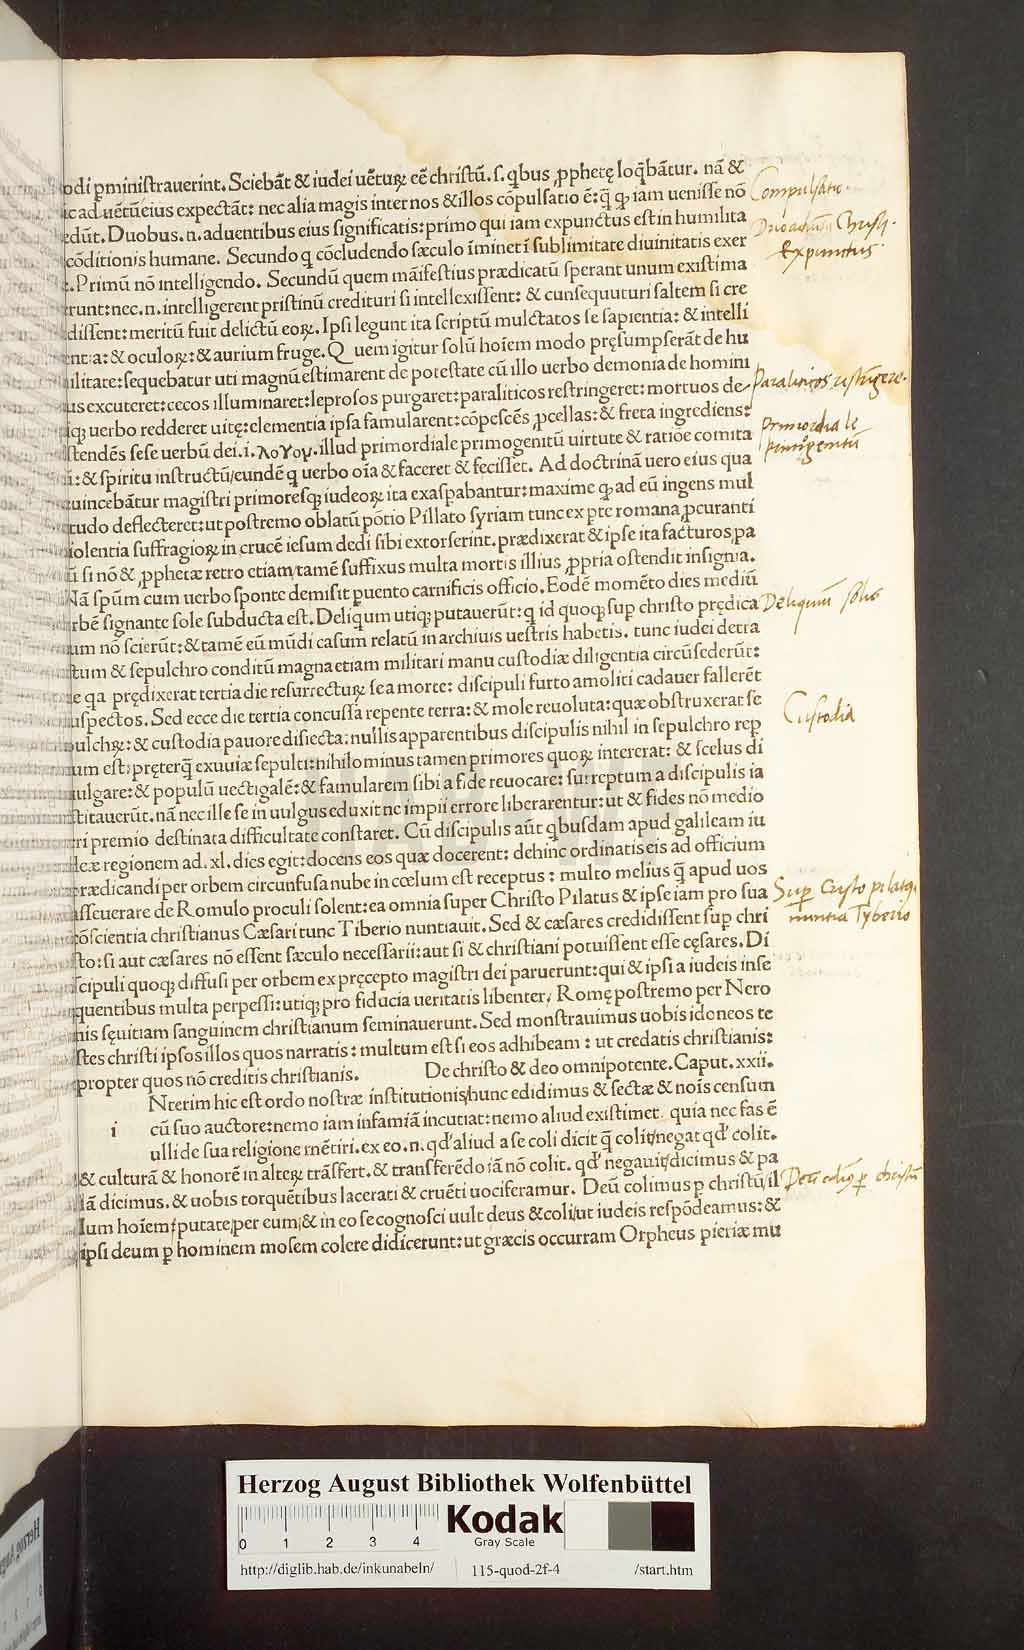 odi ꝑminiſtrauerint. Sciebāt & iudei uētuꝝ eē chriſtū. ſ. qbus ꝓphetę loq̄bātur. nā &
ic ad uētū eius expectāt: nec alia magis inter nos & illos cōpulſatio ē: q̄ ꝙ iam ueniſſe nō
edūt. Duobus. n. aduentibus eius ſignificatis: primo qui iam expunctus eſt in humilita
cōditionis humane. Secundo q cōcludendo ſæculo īminet ī ſublimitate diuinitatis exer
. Primū nō intelligendo. Secundū quem māifeſtius prædicatū ſperant unum exiſtima
runt: nec. n. intelligerent priſtinū credituri ſi intellexiſſent: & cunſequuturi ſaltem ſi cre
diſſent: meritū fuit delictū eoꝝ. Ipſi legunt ita ſcriptū mulctatos ſe ſapientia: & intelli
entia: & oculoꝝ: & aurium fruge. Quem igitur ſolū hoīem modo pręſumpſerāt de hu
ilitate: ſequebatur uti magnū eſtimarent de poteſtate cū illo uerbo demonia de homini
us excuteret: cecos illuminaret: leproſos purgaret: paraliticos reſtringeret: mortuos de
iqꝫ uerbo redderet uitę: elementia ipſa famularent: cōpeſcēs ꝓcellas: & freta ingrediens:
ſtendēs ſeſe uerbū dei. i. λογον. illud primordiale primogenitū uirtute & ratiōe comita
ū: & ſpiritu inſtructū/ eundē q uerbo oīa & faceret & feciſſet. Ad doctrinā uero eius qua
uincebātur magiſtri primoreſqꝫ iudeoꝝ ita exaſꝑabantur: maxime ꝙ ad eū ingens mul
tudo deflecteret: ut poſtremo oblatū pōtio Pillato ſyriam tunc ex ꝑte romana ꝓcuranti
iolentia ſuffragioꝝ in crucē ieſum dedi ſibi extorſerint. prædixerat & ipſe ita facturos/ pa
ū ſi nō & ꝓphetæ retro etiam/ tamē ſuffixus multa mortis illius ꝓpria oſtendit inſignia.
Nā ſpūm cum uerbo ſponte demiſit p̄uento carnificis officio. Eodē momēto dies mediū
rbē ſignante ſole ſubducta eſt. Deliqum utiqꝫ putauerūt: q id quoqꝫ ſup chriſto prędica
um nō ſcierūt: & tamē eū mūdi caſum relatū in archiuis ueſtris habetis. tunc iudei detra
tum & ſepulchro conditū magna etiam militari manu cuſtodiæ diligentia circūſederūt:
e qa prędixerat tertia die reſurrectuꝝ ſe a morte: diſcipuli furto amoliti cadauer fallerēt
uſpectos. Sed ecce die tertia concuſſa repente terra: & mole reuoluta: quæ obſtruxerat ſe
ulchꝝ: & cuſtodia pauore diſiecta: nullis apparentibus diſcipulis nihil in ſepulchro rep
um eſt: pręterq̄ exuuiæ ſepulti: nihilominus tamen primores quoꝝ intererat: & ſcelus di
uulgare: & populū uectigalē: & famularem ſibi a fide reuocare: ſurreptum a diſcipulis ia
titauerūt. nā nec ille ſe in uulgus eduxit ne impii errore liberarentur: ut & fides nō medio
ri premio deſtinata difficultate conſtaret. Cū diſcipulis aūt qbuſdam apud galileam iu
deæ regionem ad. xl. dies egit: docens eos quæ docerent: dehinc ordinatis eis ad officium
rædicandi per orbem circunfuſa nube in cœlum eſt receptus: multo melius q̄ apud uos
aſſeuerare de Romulo proculi ſolent: ea omnia ſuper Chriſto Pilatus & ipſe iam pro ſua
cōſcientia chriſtianus Cæſari tunc Tiberio nuntiauit. Sed & cæſares credidiſſent ſup chri
ſto: ſi aut cæſares nō eſſent ſæculo neceſſarii: aut ſi & chriſtiani potuiſſent eſſe cęſares. Di
ſcipuli quoqꝫ diffuſi per orbem ex pręcepto magiſtri dei paruerunt: qui & ipſi a iudeis inſe
quentibus multa perpeſſi: utiqꝫ pro fiducia ueritatis libenter/ Romę poſtremo per Nero
nis ſęuitiam ſanguinem chriſtianum ſeminauerunt. Sed monſtrauimus uobis idoneos te
ſtes chriſti ipſos illos quos narratis: multum eſt ſi eos adhibeam: ut credatis chriſtianis:
propter quos nō creditis chriſtianis. De chriſto & deo omnipotente. Caput. xxii.
i Nterim hic eſt ordo noſtræ inſtitutionis/ hunc edidimus & ſectæ & noīs cenſum
cū ſuo auctore: nemo iam infamīā incutiat: nemo aliud exiſtimet. quia nec fas ē
ulli de ſua religione mētiri. ex eo. n. qđ aliud a ſe coli dicit q̄ colit/ negat qđ colit.
& culturā & honorē in alteꝝ trāſfert. & tranſferēdo iā nō colit. qđ negauit/ dicimus & pa
lā dicimus. & uobis torquētibus lacerati & cruēti uociferamur. Deū colimus ꝑ chriſtū/ il
lum hoīem putate/ per eum/ & in eo ſe cognoſci uult deus & coli/ ut iudeis reſpōdeamus: &
ipſi deum ꝑ hominem moſem colere didicerunt: ut græcis occurram Orpheus pieriæ mu
Compulsatio.
Duo aduētus Christi.
Expunctus
Paraliticos restringere.
Primordiale
primogenitū
Deliquium solis
Custodia
Sup Cristo pilatus
nuntia Tyberio
Deū colim9 ꝑ christū
Herzog August Bibliothek Wolfenbüttel
0 1 2 3 4
Kodak
Gray Scale
http://diglib.hab.de/inkunabeln/ 115-quod-2f-4 /start.htm